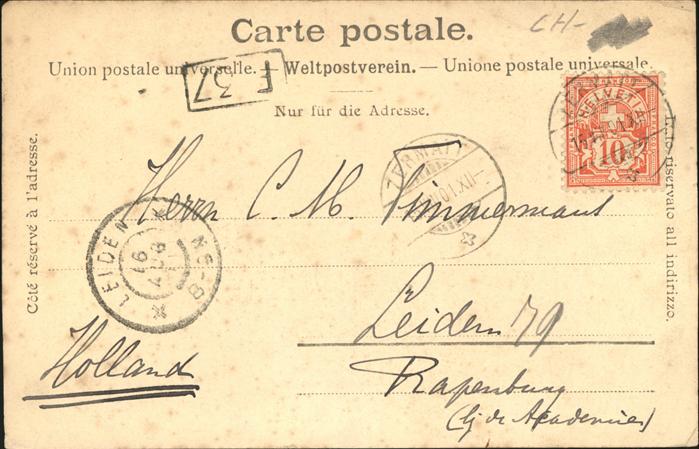 Carte postale.
CH-
Union postale universelle. — Weltpostverein. — Unione postale universale.
F 37
Nur für die Adresse.
HELVETIA
10
Côté réservé à l'adresse.
Lato riservato all indirizzo.
ZERMATT
Herrn C. M. Timmermans
LEIDEN
16 AUG
Leiden 79
Holland
Rapenburg
(bij de Academie)